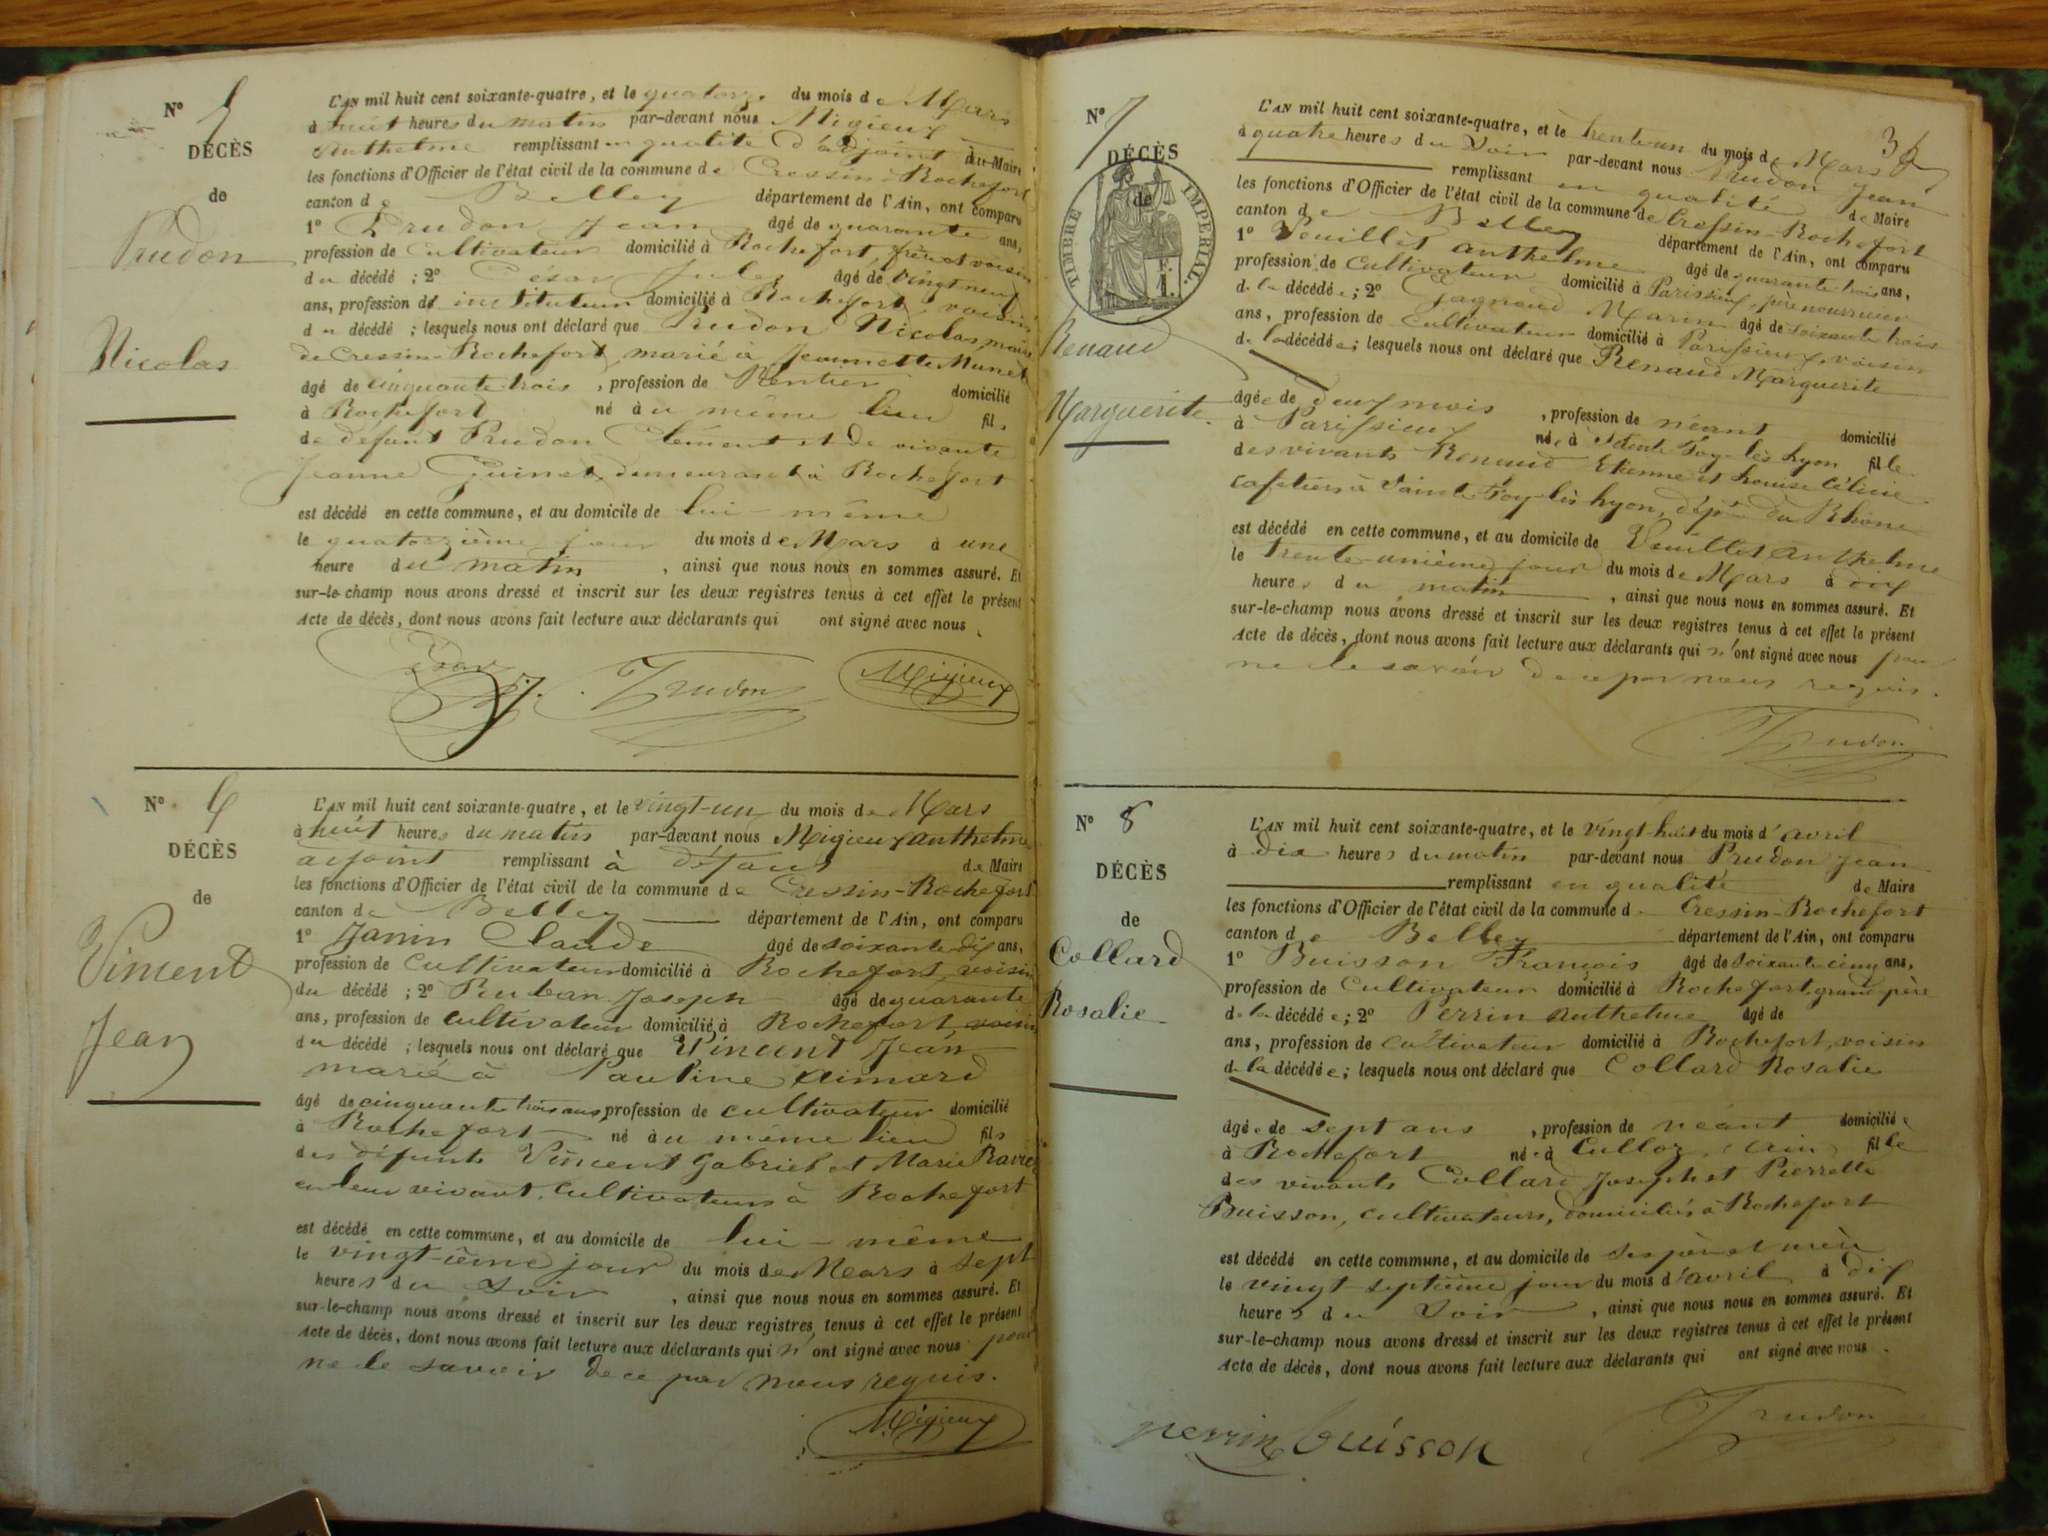 N° 5
DÉCÈS
de
Prudon
Nicolas
L'AN mil huit cent soixante-quatre, et le quatorze du mois de Mars
à huit heures du matin par-devant nous Migieux
Anthelme remplissant en qualité d'adjoint au Maire
les fonctions d'Officier de l'état civil de la commune de Cressin-Rochefort
canton de Belley département de l'Ain, ont comparu
1° Prudon Jean âgé de quarante ans,
profession de cultivateur domicilié à Rochefort, frère et voisin
du décédé ; 2° César Jules âgé de vingt neuf
ans, profession d' instituteur domicilié à Rochefort, voisin
du décédé ; lesquels nous ont déclaré que Prudon Nicolas, maire
de Cressin-Rochefort, marié à Jeannette Munet
âgé de cinquante trois , profession de Rentier domicilié
à Rochefort né au même lieu fils
de défunt Prudon Clément et de vivante
Jeanne Guinet, demeurant à Rochefort
est décédé en cette commune, et au domicile de lui-même
le quatorzième jour du mois de Mars à une
heure du matin , ainsi que nous nous en sommes assuré. Et
sur-le-champ nous avons dressé et inscrit sur les deux registres tenus à cet effet le présent
Acte de décès, dont nous avons fait lecture aux déclarants qui ont signé avec nous.
Prudon Migieux
N° 6
DÉCÈS
de
Vincent
Jean
L'AN mil huit cent soixante-quatre, et le vingt-un du mois de Mars
à huit heures du matin par-devant nous Migieux Anthelme
adjoint remplissant à défaut de Maire
les fonctions d'Officier de l'état civil de la commune de Cressin-Rochefort
canton de Belley département de l'Ain, ont comparu
1° Janin Claude âgé de soixante-dix ans,
profession de cultivateur domicilié à Rochefort, voisin
du décédé ; 2° Ruban Joseph âgé de quarante
ans, profession de cultivateur domicilié à Rochefort, voisin
du décédé ; lesquels nous ont déclaré que Vincent Jean
marié à Pauline Aimard
âgé de cinquante trois ans, profession de cultivateur domicilié
à Rochefort né au même lieu fils
des défunts Vincent Gabriel et Marie
en leur vivant, cultivateurs à Rochefort
est décédé en cette commune, et au domicile de lui-même
le vingtième jour du mois de Mars à sept
heures du soir , ainsi que nous nous en sommes assuré. Et
sur-le-champ nous avons dressé et inscrit sur les deux registres tenus à cet effet le présent
Acte de décès, dont nous avons fait lecture aux déclarants qui n'ont signé avec nous pour
ne le savoir de ce par nous requis.
Migieux
N° 7
DÉCÈS
de
TIMBRE IMPÉRIAL
Renaud
Marguerite
L'AN mil huit cent soixante-quatre, et le trente-un du mois de Mars
à quatre heures du soir par-devant nous Prudon Jean
remplissant en qualité de Maire
les fonctions d'Officier de l'état civil de la commune de Cressin-Rochefort
canton de Belley département de l'Ain, ont comparu
1° Veuillet Anthelme âgé de quarante trois ans,
profession de cultivateur domicilié à Parissieux, père nourricier
de la décédée ; 2° Gagnaud Marin âgé de soixante trois
ans, profession de cultivateur domicilié à Parissieux, voisin
de la décédée ; lesquels nous ont déclaré que Renaud Marguerite
âgée de deux mois , profession de néant domicilié
à Parissieux née à Sainte Foy-lès-Lyon fille
des vivants Renaud Etienne et Louise Célinie
cafetiers à Sainte Foy-lès-Lyon, dépt du Rhône
est décédé en cette commune, et au domicile de Veuillet Anthelme
le trente-unième jour du mois de Mars à dix
heures du matin , ainsi que nous nous en sommes assuré. Et
sur-le-champ nous avons dressé et inscrit sur les deux registres tenus à cet effet le présent
Acte de décès, dont nous avons fait lecture aux déclarants qui n'ont signé avec nous pour
ne le savoir de ce par nous requis.
Prudon
N° 8
DÉCÈS
de
Collard
Rosalie
L'AN mil huit cent soixante-quatre, et le vingt-huit du mois d'avril
à dix heures du matin par-devant nous Prudon Jean
remplissant en qualité de Maire
les fonctions d'Officier de l'état civil de la commune d Cressin-Rochefort
canton de Belley département de l'Ain, ont comparu
1° Buisson François âgé de soixante cinq ans,
profession de cultivateur domicilié à Rochefort, grand père
de la décédée ; 2° Perrin Anthelme âgé de
ans, profession de cultivateur domicilié à Rochefort, voisin
de la décédée ; lesquels nous ont déclaré que Collard Rosalie
âgée de sept ans , profession de néant domiciliée
à Rochefort née à Culloz, Ain, fille
des vivants Collard Joseph et Pierrette
Buisson, cultivateurs, domiciliés à Rochefort
est décédé en cette commune, et au domicile de ses père et mère
le vingt septième jour du mois d'avril à dix
heures du soir , ainsi que nous nous en sommes assuré. Et
sur-le-champ nous avons dressé et inscrit sur les deux registres tenus à cet effet le présent
Acte de décès, dont nous avons fait lecture aux déclarants qui ont signé avec nous.
perrin buisson Prudon